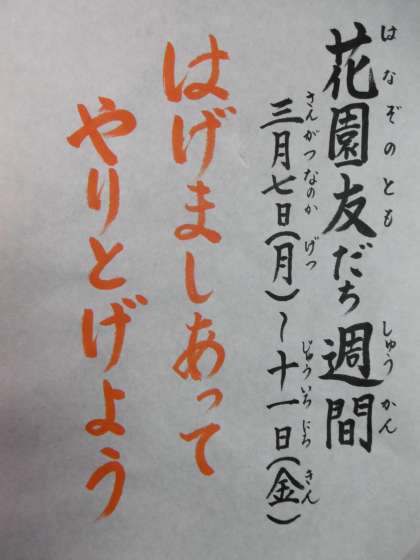 花園友だち週間
はなぞのとも
しゅうかん
三月七日(月)~十一日(金)
さんがつなのか
げつ
じゅういちにち
きん
はげましあって
やりとげよう